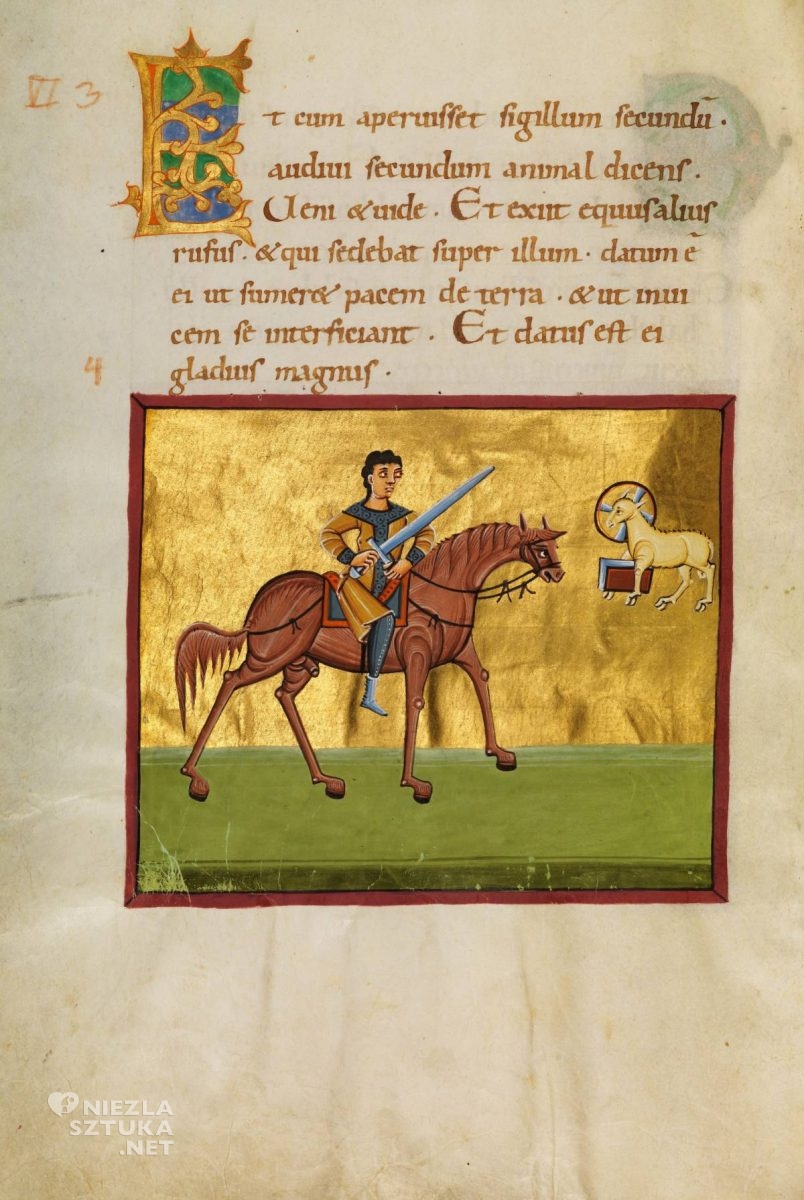 VI 3
Et cum aperuisset sigillum secundū·
audiui secundum animal dicens.
Ueni &uide. Et exiit equusalius
rufus. &qui sedebat super illum· datum ē
ei ut sumer& pacem de terra· &ut inui
cem se interficiant. Et datusest ei
4
gladius magnus·
NIEZLA
SZTUKA
.NET